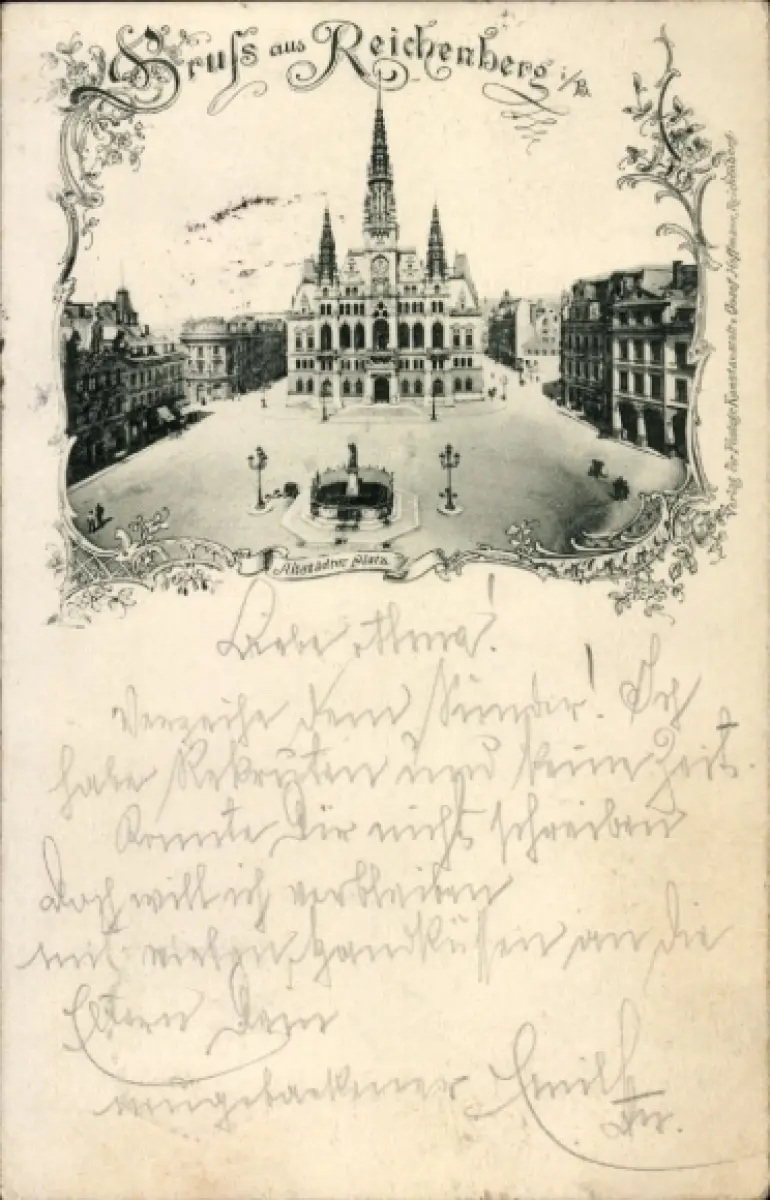 Gruss aus Reichenberg i/B.
Verlag der Photogr. Kunstanstalt v. Hoffmann, Reichenberg
Altstädter Platz
Liebe
Verzeihe dem Sünder! Ich
habe Rekruten und keine Zeit.
Konnte Dir nicht schreiben
doch will ich verbleiben
mit vielen Handküssen an die
Eltern Dein
neugebackener Emil